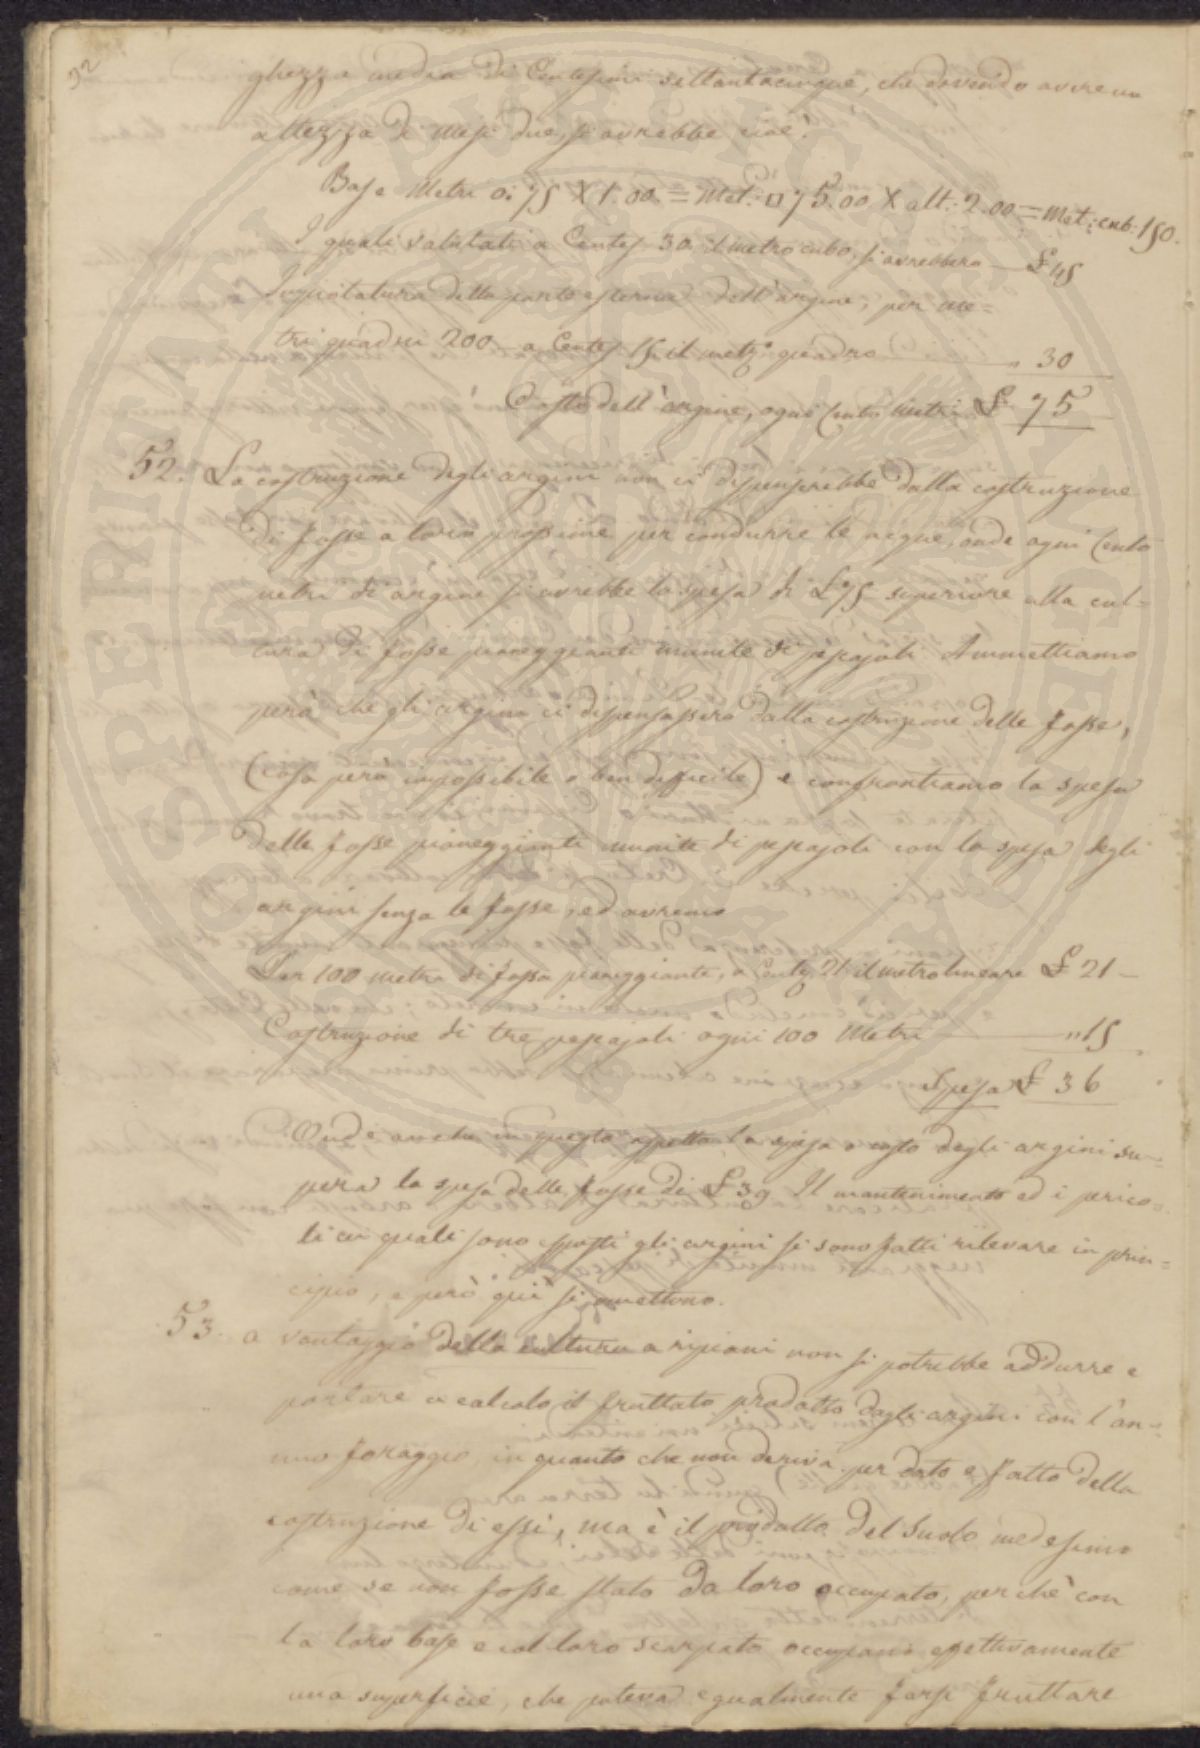 92
ghezza media di Centesimi settantacinque, che dovendo avere un
altezza di Mesi due, si avrebbe cioè:
Base Metri 0:75 X 1.00. = Met: □ 75.00 X alt: 2.00 = Met: cub. 150.
I quali valutati a Centes 30 il metro cubo, si avrebbero — £ 45
della parte esterna dell'argine, per me=
tri quadri 200 a Centes 15 il metro quadro — " 30
Costo dell'argine, ogni Cento Metri £ 75
52. La costruzione degli argini non ci dispenserebbe dalla costruzione
di fosse a loro prossime per condurre le acque, onde ogni Cento
metri di argine si avrebbe la spesa di £ 75 superiore alla cul=
tura di fosse pianeggianti munite di pescajoli. Ammettiamo
però che gli argini ci dispensassero dalla costruzione delle fosse,
(cosa però impossibile o ben difficile) e confrontiamo la spesa
delle fosse pianeggianti munite di pescajoli con la spesa degli
argini senza le fosse, ed avremo
Per 100 metri di fossa pianeggiante, a Cents 21 il metro lineare £ 21 —
Costruzione di tre pescajoli ogni 100 Metri — " 15
Spesa £ 36
Onde anche in questo aspetto, la spesa o costo degli argini su=
pera la spesa delle fosse di £ 39. Il mantenimento ed i perico=
li ai quali sono esposti gli argini si sono fatti rilevare in prin=
cipio, e però qui si omettono.
53. a vantaggio della cultura a ripiani non si potrebbe addurre e
portare a calcolo il fruttato prodotto dagli argini con l'an=
nuo foraggio, in quanto che non deriva per dato e fatto della
costruzione di essi, ma è il prodotto del Suolo medesimo
come se non fosse stato da loro occupato, perchè con
la loro base e col loro scarpato occupano effettivamente
una superficie, che poteva egualmente farsi fruttare
SOPRINTENDENZA ARCHIVISTICA